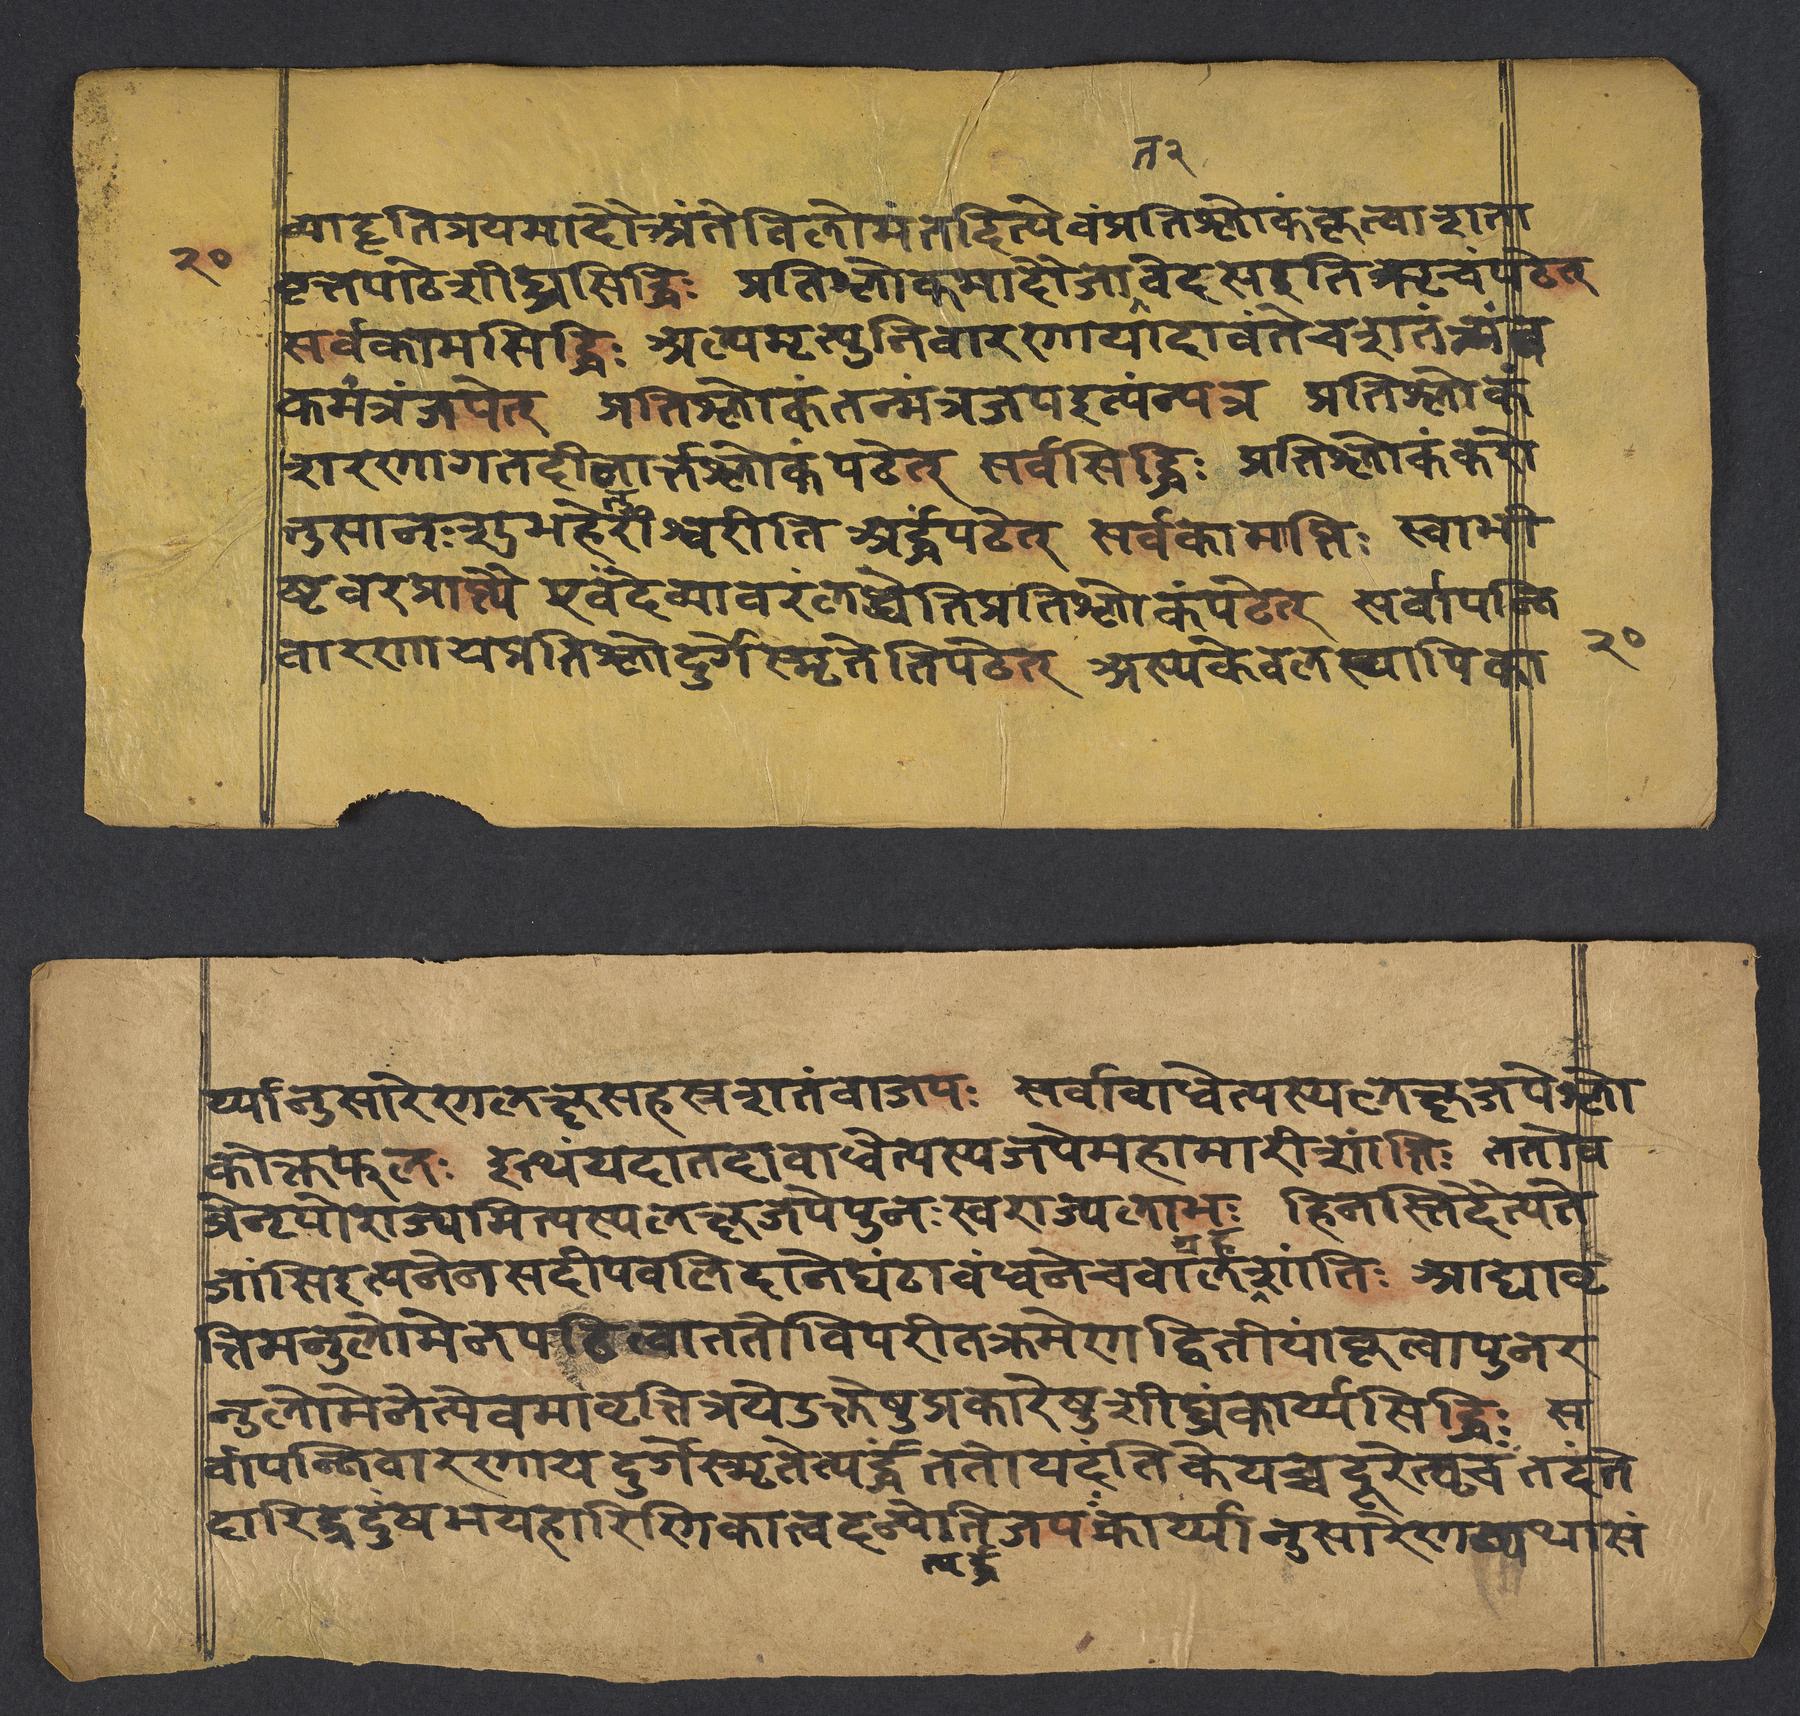 त २
व्याहृतित्रयमादौअंतेविलोमंतदित्येवंप्रतिश्लोकंकृत्वाशता
२०
वृत्तपाठेशीघ्रसिद्धिः प्रतिश्लोकमादौजावेदसइतिऋचंपठेत्
सर्वकामसिद्धिः अल्पमृत्युनिवारणायादावंतेचशतंत्र्यंब
कमंत्रंजपेत् प्रतिश्लोकंतन्मंत्रजपइत्यंन्यत्र प्रतिश्लोकं
शरणागतदीनार्त्तश्लोकंपठेत् सर्वसिद्धिः प्रतिश्लोकंकरो
तुसानःशुभहेतुरीश्वरीति अर्द्धंपठेत् सर्वकामाप्तिः स्वाभी
ष्टवरप्राप्त्यै एवंदेव्यावरंलब्ध्वेतिप्रतिश्लोकंपठेत् सर्वापन्नि
वारणायप्रतिश्लोदुर्गेस्मृतेतिपठेत् अस्यकेवलस्यापिका
२०
र्य्यानुसारेणलक्षसहस्रशतंवाजपः सर्वावाधेत्यस्यलक्षजपेश्लो
कोक्तफलः इत्थंयदातदावाधेत्यस्यजपेमहामारीशांतिः ततोव
व्रेनृपोराज्यमित्यस्यलक्षजपेपुनःस्वराज्यलाभः हिनस्तिदैत्यते
ग्रह
जांसिइत्यनेनसदीपवलिदानेघंटावंधनेचवालशांतिः आद्यावृ
त्तिमनुलोमेनपठित्वाततोविपरीतक्रमेणद्वितीयांकृत्वापुनर
नुलोमेनेत्येवमावृत्तित्रयेउक्तेषुप्रकारेषुशीघ्रंकार्य्यसिद्धिः स
र्वापन्निवारणाय दुर्गेस्मृतेत्यर्द्धं ततोयदंतिकेयच्चदूरेत्यृचं तदंते
दारिद्र्यदुःखभयहारिणिकात्वदन्येतिजपः कार्य्यानुसारेणव्यथासं
त्यर्द्धं